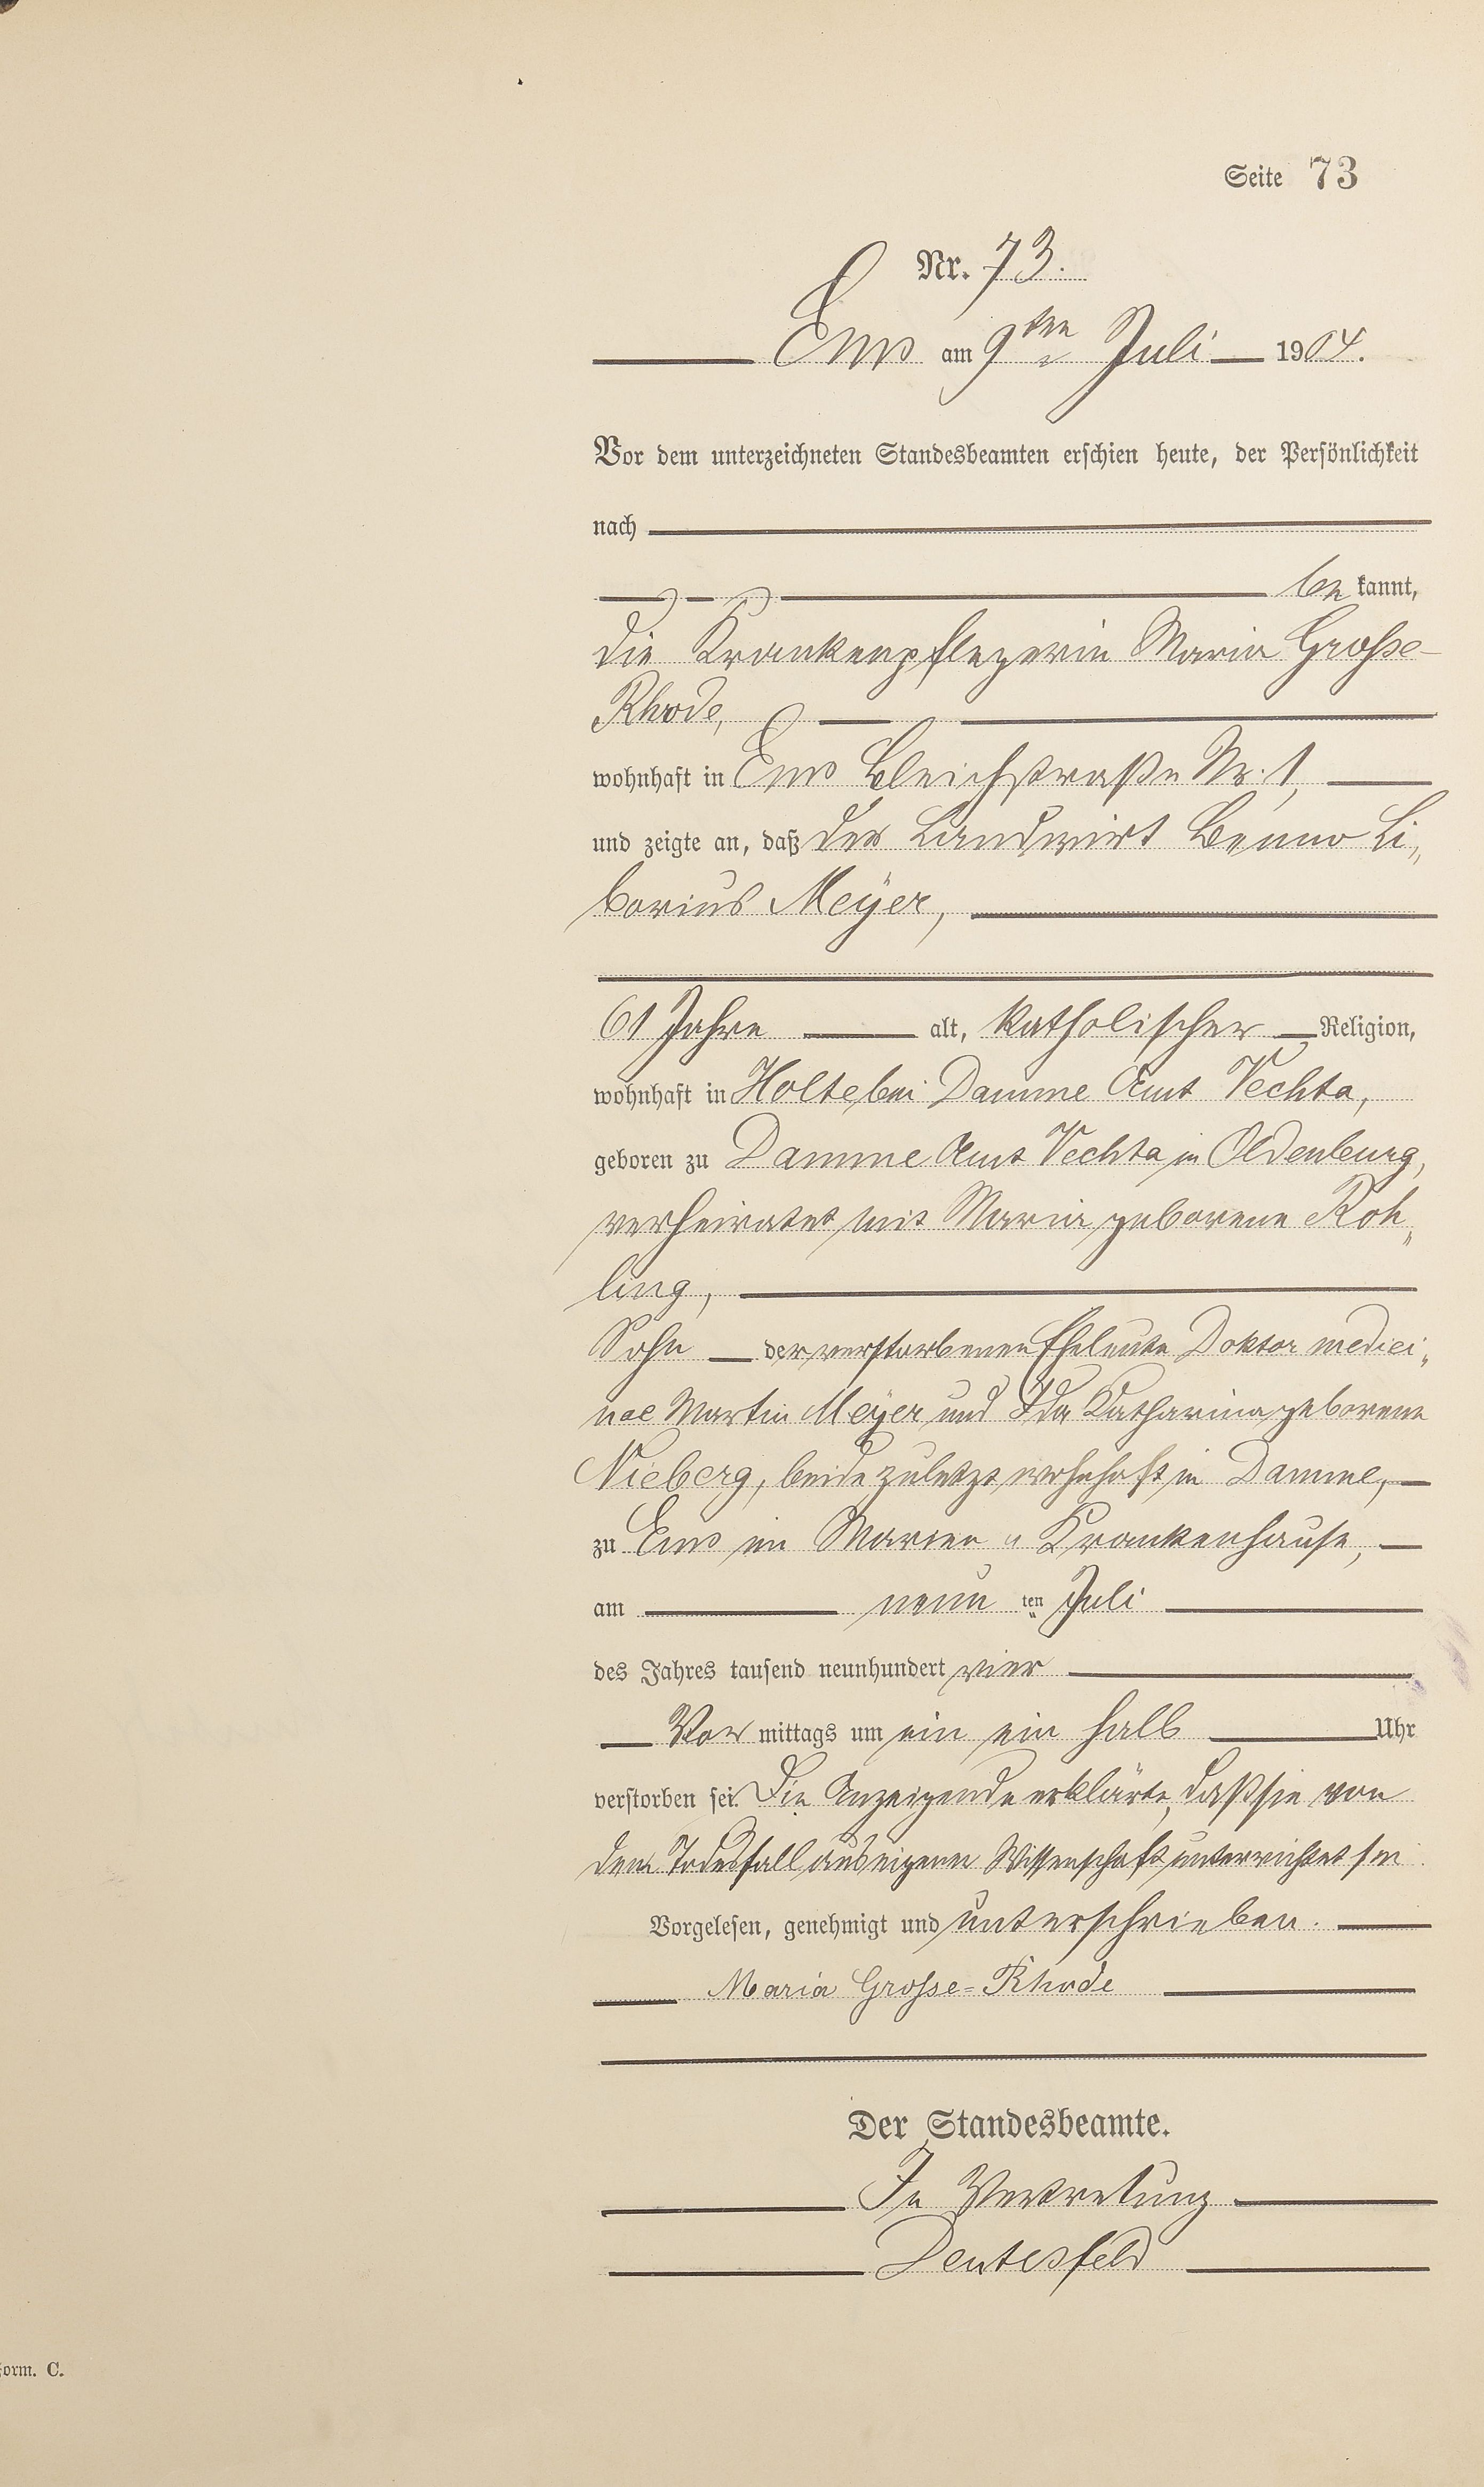 Seite 73
Nr. 73.
Ems am 9ten Juli 1904.
Vor dem unterzeichneten Standesbeamten erschien heute, der Persönlichkeit
nach
bekannt,
die Krankenpflegerin Maria Große-
Rhode,
wohnhaft in Ems Bleichstraße Nr. 1,
und zeigte an, daß der Landwirt Benno Li„
borius Meÿer,
61 Jahre alt, katholischer Religion,
wohnhaft in Holte bei Damme Amt Vechta,
geboren zu Damme Amt Vechta in Oldenburg,
verheiratet mit Maria geborene Roh„
ling,
Sohn der verstorbenen Eheleute Doktor medici„
nae Martin Meÿer und Ida Katharina geborene
Nieberg, beide zuletzt wohnhaft in Damme,
zu Ems im Marien „ Krankenhause,
am neun ten Juli
des Jahres tausend neunhundert vier
Vor mittags um ein ein halb Uhr
verstorben sei. Die Anzeigende erklärte, daß sie von
dem Todesfall aus eigener Wissenschaft unterrichtet sei.
Vorgelesen, genehmigt und unterschrieben.
Maria Grosse=Rhode
Der Standesbeamte.
In Vertretung
Deutesfeld
Form. C.